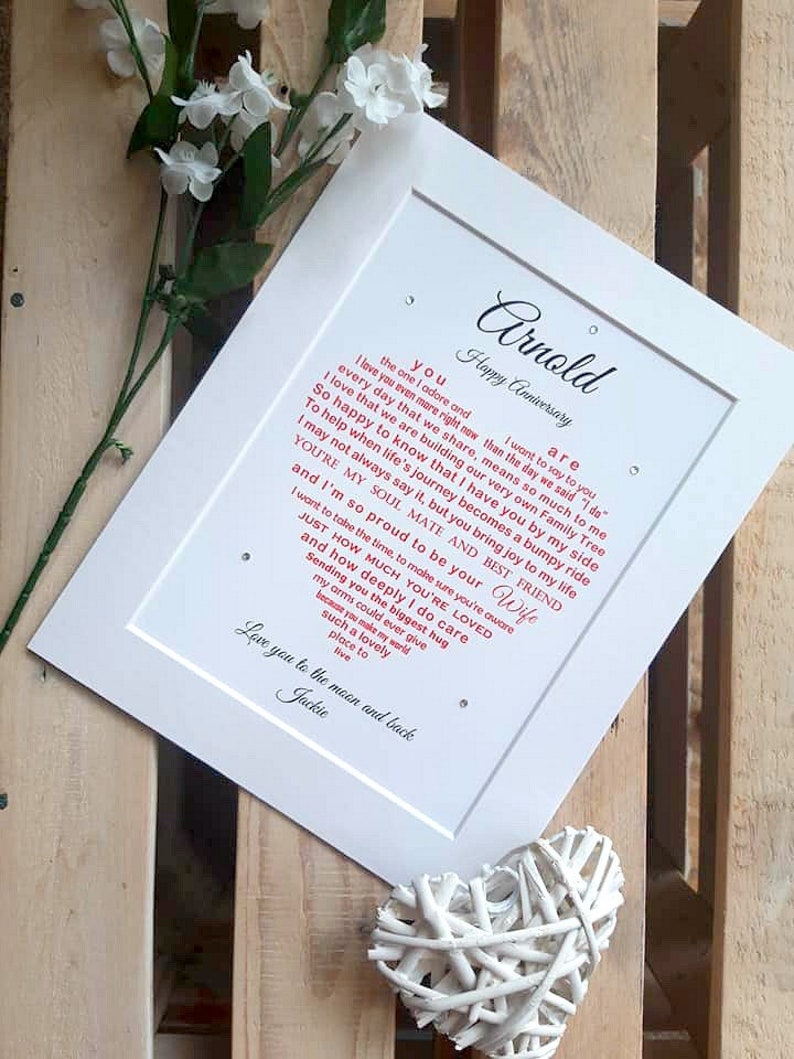 Arnold
Happy Anniversary
you are
the one I adore and I want to say to you
I love you even more right now than the day we said "I do"
every day that we share, means so much to me
I love that we are building our very own Family Tree
So happy to know that I have you by my side
To help when life's journey becomes a bumpy ride
I may not always say it, but you bring joy to my life
YOU'RE MY SOUL MATE AND BEST FRIEND
and I'm so proud to be your Wife
I want to take the time, to make sure you're aware
JUST HOW MUCH YOU'RE LOVED
and how deeply I do care
Sending you the biggest hug
my arms could ever give
because you make my world
such a lovely
place to
live
Love you to the moon and back
Jackie